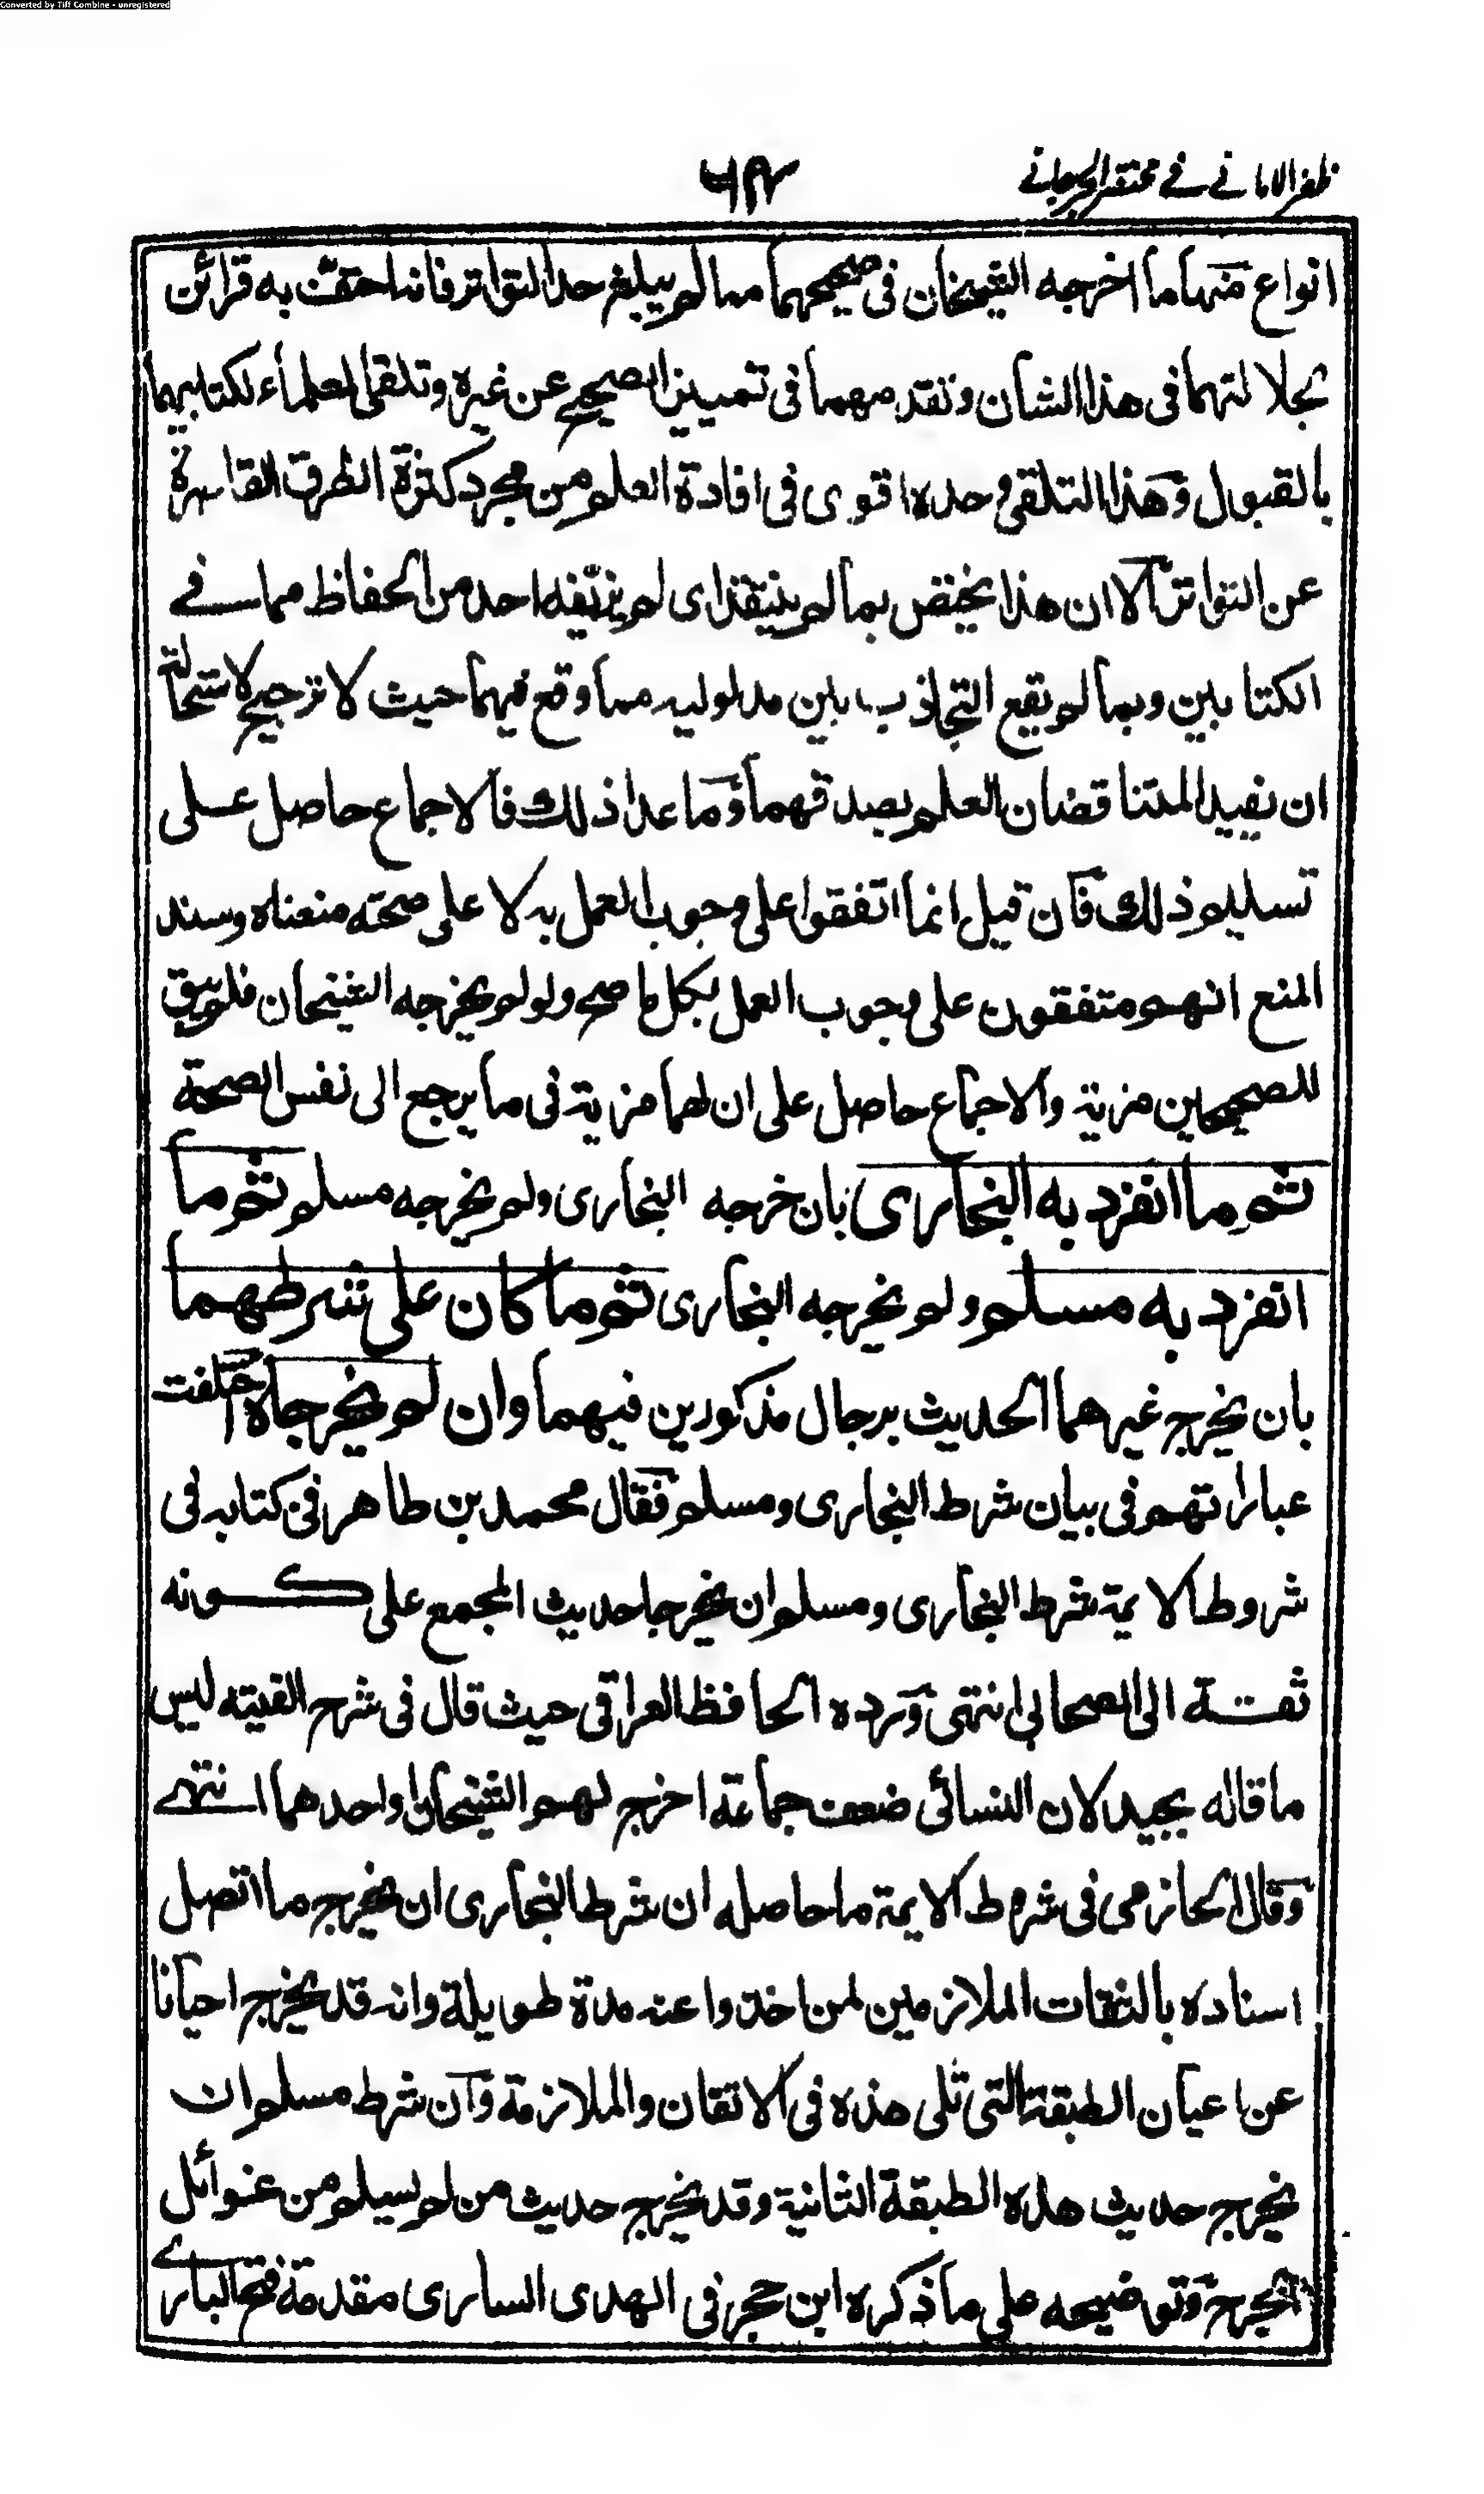 Converted by Tiff Combine - unregistered
ظفر الامانے فے مختصر الجرجانے
٦٤
انواع منها ما اخرجه الشيخان فى صحيحهما مما لم يبلغ حد التواتر فانه احتفت به قرائن
بجلالتهما فى هذا الشان وتقدمهما فى تمييز الصحيح عن غيره وتلقى العلماء لكتابيهما
بالقبول وهذا التلقى وحده اقوى فى افادة العلم من مجرد كثرة الطرق القاصرة
عن التواتر الا ان هذا يختص بما لم ينتقد اى لم يزيفه احد من الحفاظ مما فے
الكتابين وبما لم يقع التجاذب بين مدلوليه مما وقع فيهما حيث لا ترجيح لاستحالة
ان يفيد المتناقضان العلم بصدقهما وما عدا ذلك فالاجماع حاصل على
تسليم ذلك فان قيل انما اتفقوا على وجوب العمل به لا على صحته منعناه وسند
المنع انهم متفقون على وجوب العمل بكل ما صح ولو لم يخرجه الشيخان فلم يبق
للصحيحين مزية والاجماع حاصل على ان لهما مزية فى ما يرجع الى نفس الصحة
ثم ما انفرد به البخارى بان خرجه البخارى ولم يخرجه مسلم ثم ما
انفرد به مسلم ولم يخرجه البخارى ثم ما كان على شرطهما
بان يخرج غيرهما الحديث برجال مذكورين فيهما وان لم يخرجاه اختلفت
عباراتهم فى بيان شرط البخارى ومسلم فقال محمد بن طاهر فى كتابه فى
شروط الايمة شرط البخارى ومسلم ان يخرجا حديث المجمع على كونه
ثقتة الى الصحابى انتهى ورده الحافظ العراقى حيث قال فى شرح الفيته ليس
ما قاله بجيد لان النسائى ضعف جماعة اخرج لهم الشيخان او احدهما انتهے
وقال الحازمى فى شروط الايمة ما حاصله ان شرط البخارى ان يخرج ما اتصل
اسناده بالثقات الملازمين لمن اخذوا عنه مدة طويلة وانه قد يخرج احيانا
عن اعيان الطبقة التى تلى هذه فى الاتقان والملازمة وان شرط مسلم ان
يخرج حديث هذه الطبقة الثانية وقد يخرج حديث من لم يسلم من غوائل
الجرح وتوضيحه على ما ذكره ابن حجر فى الهدى السارى مقدمة فتح البارے